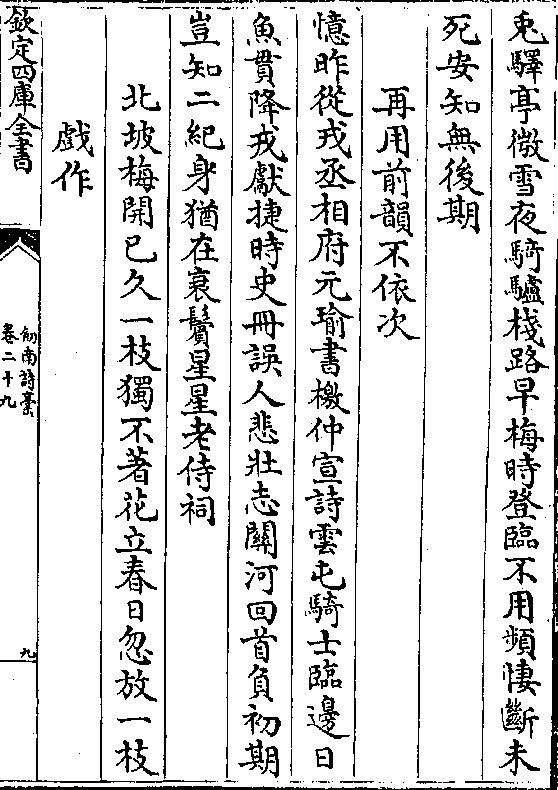 兎驛亭微雪夜騎驢棧路早梅時登臨不用頻悽斷未
死安知無後期
再用前韻不依次
憶昨從戎丞相府元瑜書檄仲宣詩雲屯騎士臨邊日
魚貫降戎獻捷時史冊誤人悲壯志關河回首負初期
豈知二紀身猶在衰鬢星星老侍祠
北坡梅開已久一枝獨不著花立春日忽放一枝
戲作
欽定四庫全書
劍南詩稾
卷二十九
九